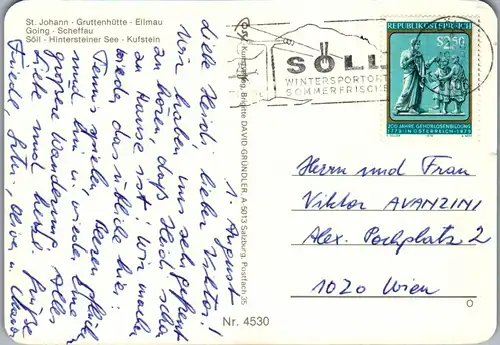 St. Johann - Gruttenhütte - Ellmau
Going - Scheffau
Söll - Hintersteiner See - Kufstein
1. August
Liebe Heidi, lieber Viktor!
Wir haben uns sehr gefreut
zu hören daß Heidi schon
zu Hause ist! Wir machen
wieder das übliche hier:
Tennis spielen, Beeren pflücken
und hin u. wieder eine
großen Wanderung. Alles
Liebe und herzl. Grüße
Kunstverlag Brigitte DAVID-GRÜNDLER, A-5013 Salzburg, Postfach 35
Nr. 4530
SÖLL
WINTERSPORTORT
SOMMERFRISCHE
REPUBLIK ÖSTERREICH
S 2.50
200 JAHRE GEHÖRLOSENBILDUNG
1779 IN ÖSTERREICH 1979
Herrn und Frau
Viktor AVANZINI
Alex. Pochplatz 2
1020 Wien